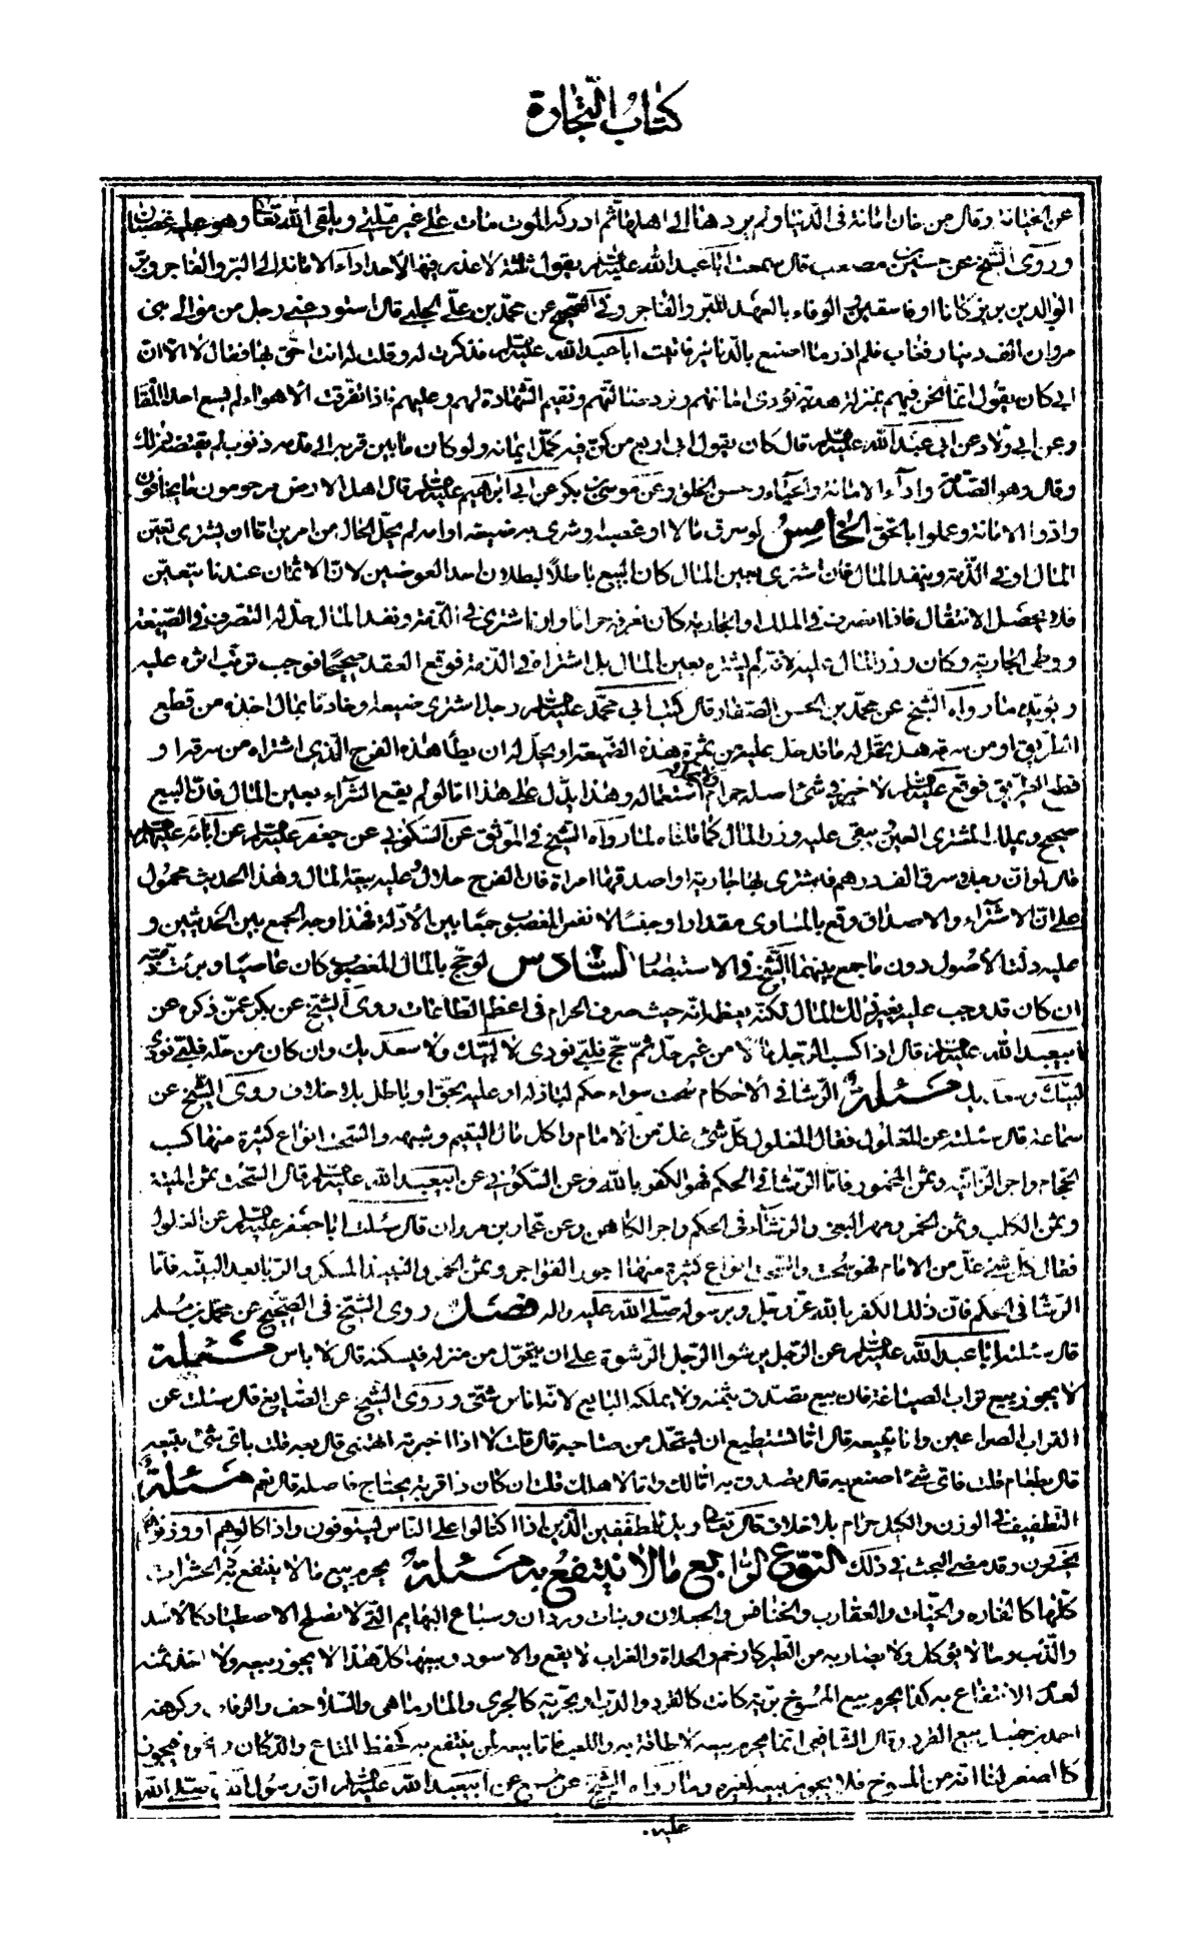 كتاب التجارة
عن الخيانة وقال من خان امانة في الدنيا ولم يردها الى اهلها ثم ادركه الموت مات على غير ملتي ويلقى الله تعالى وهو عليه غضبان
وروى الشيخ عن حسين بن مصعب قال سمعت ابا عبد الله عليه السلام يقول ثلثة لا عذر فيها لاحد اداء الامانة الى البر والفاجر وبر
الوالدين برين كانا او فاسقين والوفاء بالعهد للبر والفاجر وفي الصحيح عن محمد بن علي الحلبي قال استودعني رجل من موالي بني
مروان الف دينار فغاب فلم ادر ما اصنع بالدنانير فاتيت ابا عبد الله عليه السلام فذكرت له وقلت له انت احق بها فقال لا ان
ابي كان يقول انما نحن فيهم بمنزلة هدنة نؤدي امانتهم ونرد ضالتهم ونقيم الشهادة لهم وعليهم فاذا تفرقت الاهواء لم يسع احدا المقا
وعن ابي ولاد عن ابي عبد الله عليه السلام قال كان يقول ابي اربع من كن فيه كمل ايمانه ولو كان ما بين قرنه الى قدمه ذنوب لم ينقصه ذلك
وقال وهو الصدق واداء الامانة والحياء وحسن الخلق وعن موسى بن بكر عن ابي ابراهيم عليه السلام قال اهل الارض مرحومون ما يخافون
وادوا الامانة وعملوا بالحق الخامس لو سرق مالا او غصبه واشترى به ضيعة او امة لم يخل الحال من امرين اما ان يشتري بعين
المال او في الذمة وينقد المال فان اشترى بعين المال كان البيع باطلا لبطلان احد العوضين لان الاثمان عندنا يتعين
فلا يحصل الانتقال فاذا تصرف في الملك او الجارية كان تصرفه حراما وان اشترى في الذمة ونقد المال حل له التصرف في الضيعة
ووطى الجارية وكان وزر المال عليه لانه لم يشتره بعين المال بل اشتراه في الذمة فوقع العقد صحيحا فوجب ترتب اثره عليه
ويؤيده ما رواه الشيخ عن محمد بن الحسن الصفار قال كتب الى ابي محمد عليه السلام رجل اشترى ضيعة او خادما بمال اخذه من قطع
الطريق او من سرقه هل يحل له ما يدخل عليه من ثمرة هذه الضيعة او يحل له ان يطأ هذا الفرج الذي اشتراه من سرقة او
قطع الطريق فوقع عليه السلام لا خير في شئ اصله حرام ولا يحل استعماله وهذا يدل على هذا اما لو لم يقع الشراء بعين المال فان البيع
صحيح ويملك المشتري العين ويبقى عليه وزر المال كما قلناه لما رواه الشيخ في الموثق عن السكوني عن جعفر عليه السلام عن آبائه عليهم السلام
قال لو ان رجلا سرق الف درهم فاشترى بها جارية او اصدقها امراة فان الفرج حلال وعليه تبعة المال وهذا الحديث محمول
على ان الاشتراء والاصداق وقع بالمساوي مقدارا وجنسا لا نفس المغصوب جمعا بين الادلة فهذا وجه الجمع بين الحديثين و
عليه دلت الاصول دون ما جمع بينهما الشيخ في الاستبصار السادس لو حج بالمال المغصوب كان عاصيا وبرئت ذمته
ان كان قد وجب عليه بغير ذلك المال لكنه يعظم اثمه حيث صرف الحرام في اعظم الطاعات روى الشيخ عن بكر عمن ذكره عن
ابي عبد الله عليه السلام قال اذا كسب الرجل مالا من غير حله ثم حج فلبى نودي لا لبيك ولا سعديك وان كان من حله فلبى نودي
لبيك وسعديك مسئلة الرشا في الاحكام سحت سواء حكم لباذله او عليه بحق او باطل بلا خلاف روى الشيخ عن
سماعة قال سئلته عن الغلول فقال الغلول كل شئ غل من الامام واكل مال اليتيم وشبهه والسحت انواع كثيرة منها كسب
الحجام واجر الزانية وثمن الخمور فاما الرشا في الحكم فهو الكفر بالله وعن السكوني عن ابي عبد الله عليه السلام قال السحت ثمن الميتة
وثمن الكلب وثمن الخمر ومهر البغي والرشاء في الحكم واجر الكاهن وعن عمار بن مروان قال سئلت ابا جعفر عليه السلام عن الغلول
فقال كل شئ غل من الامام فهو سحت والسحت انواع كثيرة منها اجور الفواجر وثمن الخمر والنبيذ المسكر والربا بعد البينة فاما
الرشا في الحكم فان ذلك الكفر بالله عز وجل وبرسوله صلى الله عليه واله فصل روى الشيخ في الصحيح عن محمد بن مسلم
قال سئلت ابا عبد الله عليه السلام عن الرجل يرشوا الرجل الرشوة على ان يتحول من منزله فيسكنه قال لا باس مسئلة
لا يجوز بيع تراب الصياغة فان بيع يصدق بثمنه ولا يملكه البايع لانه اناس شتى وروى الشيخ عن الصايغ قال سئلت عن
التراب الصواغين وانا نبيعه قال اما تستطيع ان تستحله من صاحبه قال قلت لا اذا اخبرته اتهمني قال بعه قلت باي شئ نبيعه
قال بطعام قلت فاي شئ اصنع به قال تصدق به اما لك واما لاهله قلت ان كان ذا قرابة يحتاج فاصله قال نعم مسئلة
التطفيف في الوزن والكيل حرام بلا خلاف قال الله تعالى ويل للمطففين الذين اذا اكتالوا على الناس يستوفون واذا كالوهم او وزنوهم
يخسرون وقد مضى البحث في ذلك النوع الرابع ما لا ينتفع به مسئلة يحرم بيع ما لا ينتفع به كالحشرات
كلها كالفاره والحيات والعقارب والخنافس والجعلان وبنات وردان وسباع البهايم التي لا تصلح الاصطياد كالاسد
والذئب وما لا يؤكل ولا يصاد به من الطير كالرخم والحداة والغراب لا بقع والاسود وبيضها كل هذا لا يجوز بيعه ولا اخذ ثمنه
لعدم الانتفاع به كما يحرم بيع المسوخ برية كانت كالقرد والدب او بحرية كالجري والمارماهي والسلاحف والرقاء وكرهه
احمد بن حنبل بيع القرد وقال الشافعي انما يحرم بيعه لاطافة به واللعب فاما بيعه لمن ينتفع به كحفظ المتاع والدكان ونحوه فيجوز
كالصقر لنا انه من المسوخ فلا يجوز بيعه لغيره وما رواه الشيخ عن مسمع عن ابي عبد الله عليه السلام ان رسول الله صلى الله
عليه